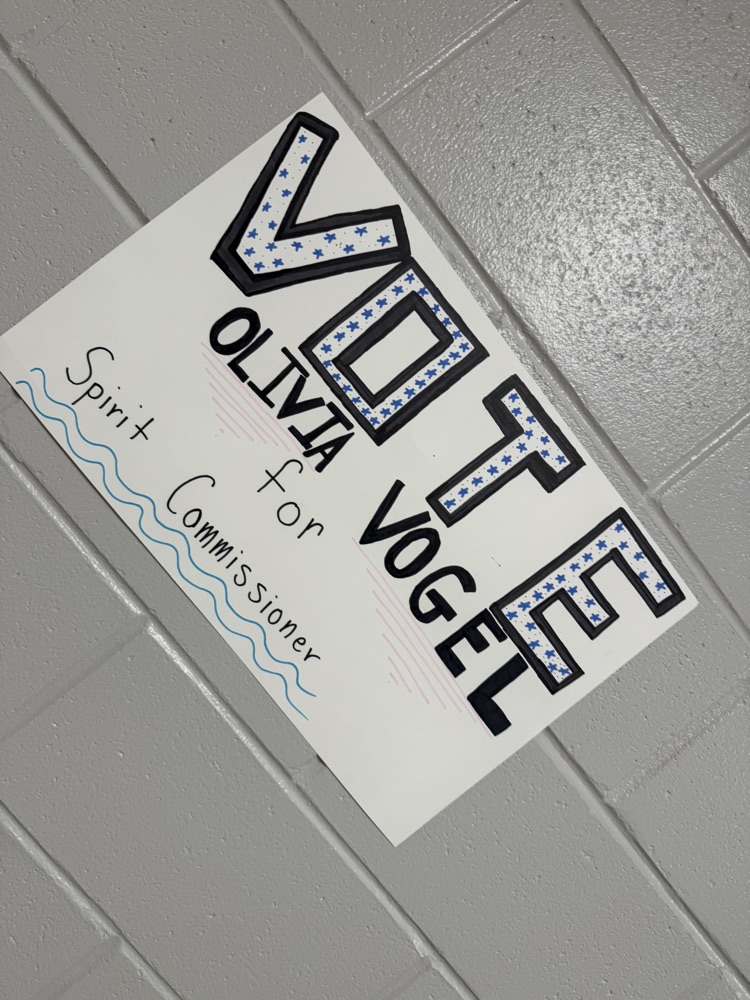 VOTE
OLIVIA VOGEL
for
Spirit Commissioner